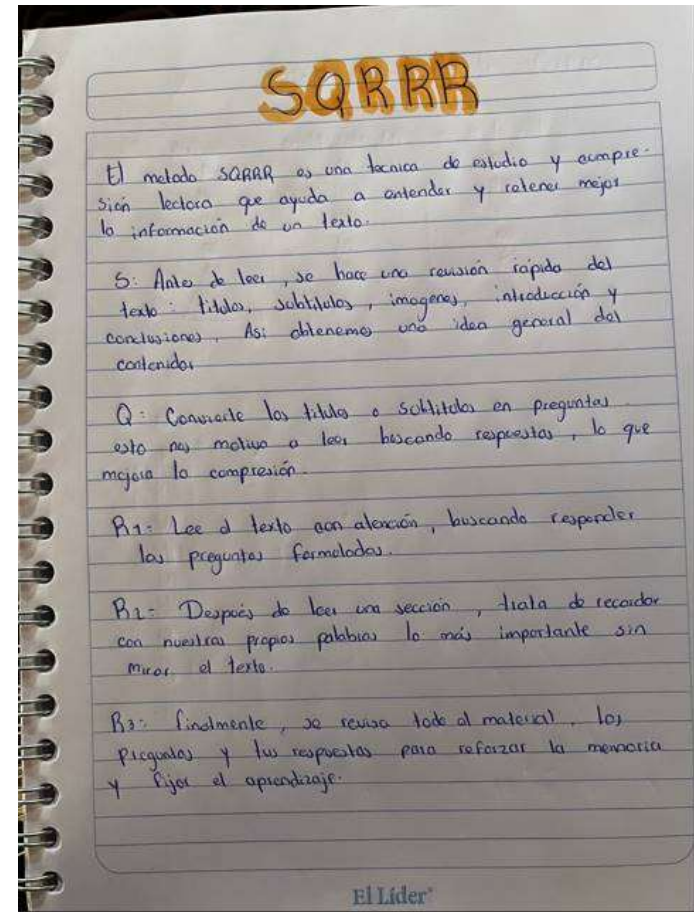 SQRRR
El metodo SQRRR es una tecnica de estudio y compre-
sión lectora que ayuda a entender y retener mejor
la información de un texto.
S: Antes de leer, se hace una revisión rápida del
texto: titulos, subtitulos, imagenes, introducción y
conclusiones. Asi obtenemos una idea general del
contenido.
Q: Convierte los titulos o subtitulos en preguntas
esto nos motiva a leer buscando respuestas, lo que
mejora la compresión.
R1: Lee el texto con atención, buscando responder
las preguntas formuladas.
R2= Después de leer una sección, trata de recordar
con nuestras propias palabras lo más importante sin
mirar el texto.
R3: finalmente, se revisa todo el material, las
preguntas y tus respuestas para reforzar la memoria
y fijar el aprendizaje.
El Líder